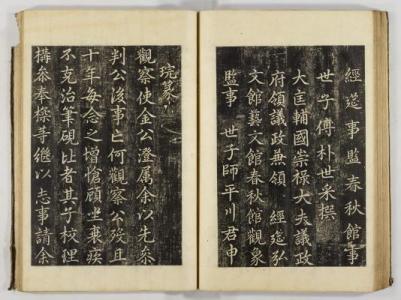 經筵事監春秋館事
世子傅朴世采撰
大匡輔國崇祿大夫議政
府領議政兼領 經筵弘
文館藝文館春秋館觀象
監事 世子師平川君申
琓篆
觀察使金公澄属余以先忝
判公後事亡何觀察公歿且
十年每念之憎愴頋坐衰疾
不克治筆硯比者其子校理
搆叅奉樑等繼以志事請余